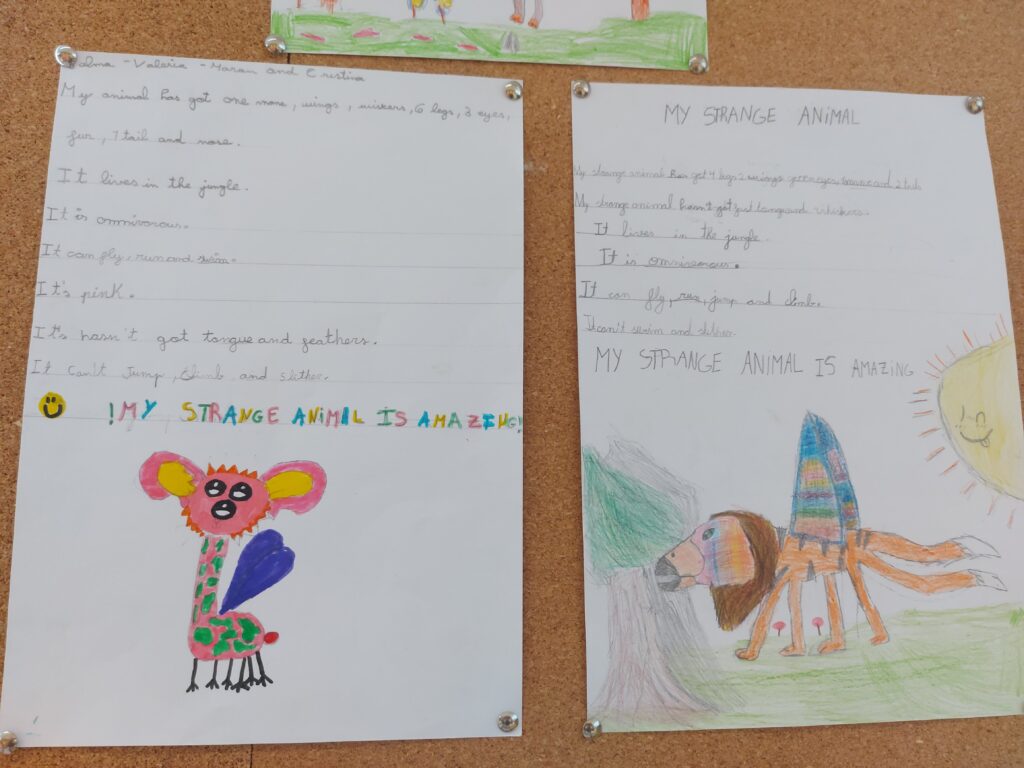 Palma - Valeria - Maram and Cristina
My animal has got one mane, wings, wiskers, 6 legs, 3 eyes,
fur, 1 tail and nose.
It lives in the jungle.
It is omnivorous.
It can fly, run and swim.
It's pink.
It's hasn't got tongue and feathers.
It can't jump, climb and slither.
!MY STRANGE ANIMAL IS AMAZING!
MY STRANGE ANIMAL
My strange animal has got 4 legs 2 wings green eyes, mane and 2 tails
My strange animal hasn't got tongue and whiskers.
It lives in the jungle.
It is omnivorous.
It can fly, run, jump and climb.
It can't swim and slither.
MY STRANGE ANIMAL IS AMAZING